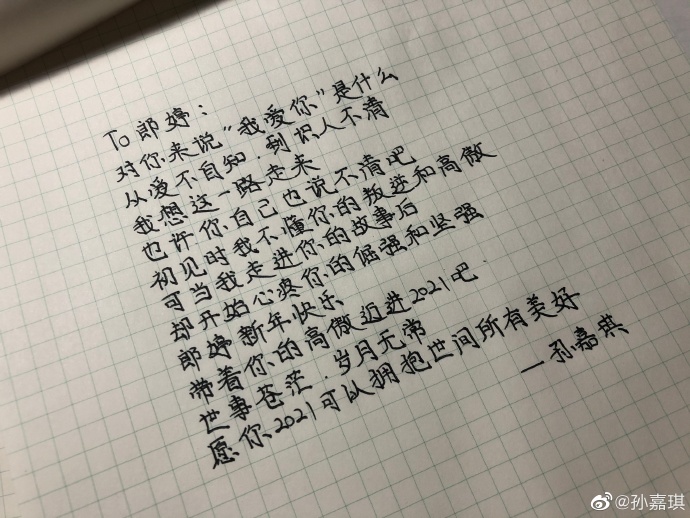 To 郎婷：
对你来说“我爱你”是什么
从爱不自知．到识人不清
我想这一路走来
也许你自己也说不清吧
初见时我不懂你的叛逆和高傲
可当我走进你的故事后
却开始心疼你的倔强和坚强
郎婷新年快乐
带着你的高傲迈进2021吧．
世事苍茫．岁月无常
愿你2021可以拥抱世间所有美好
—孙嘉琪
@孙嘉琪